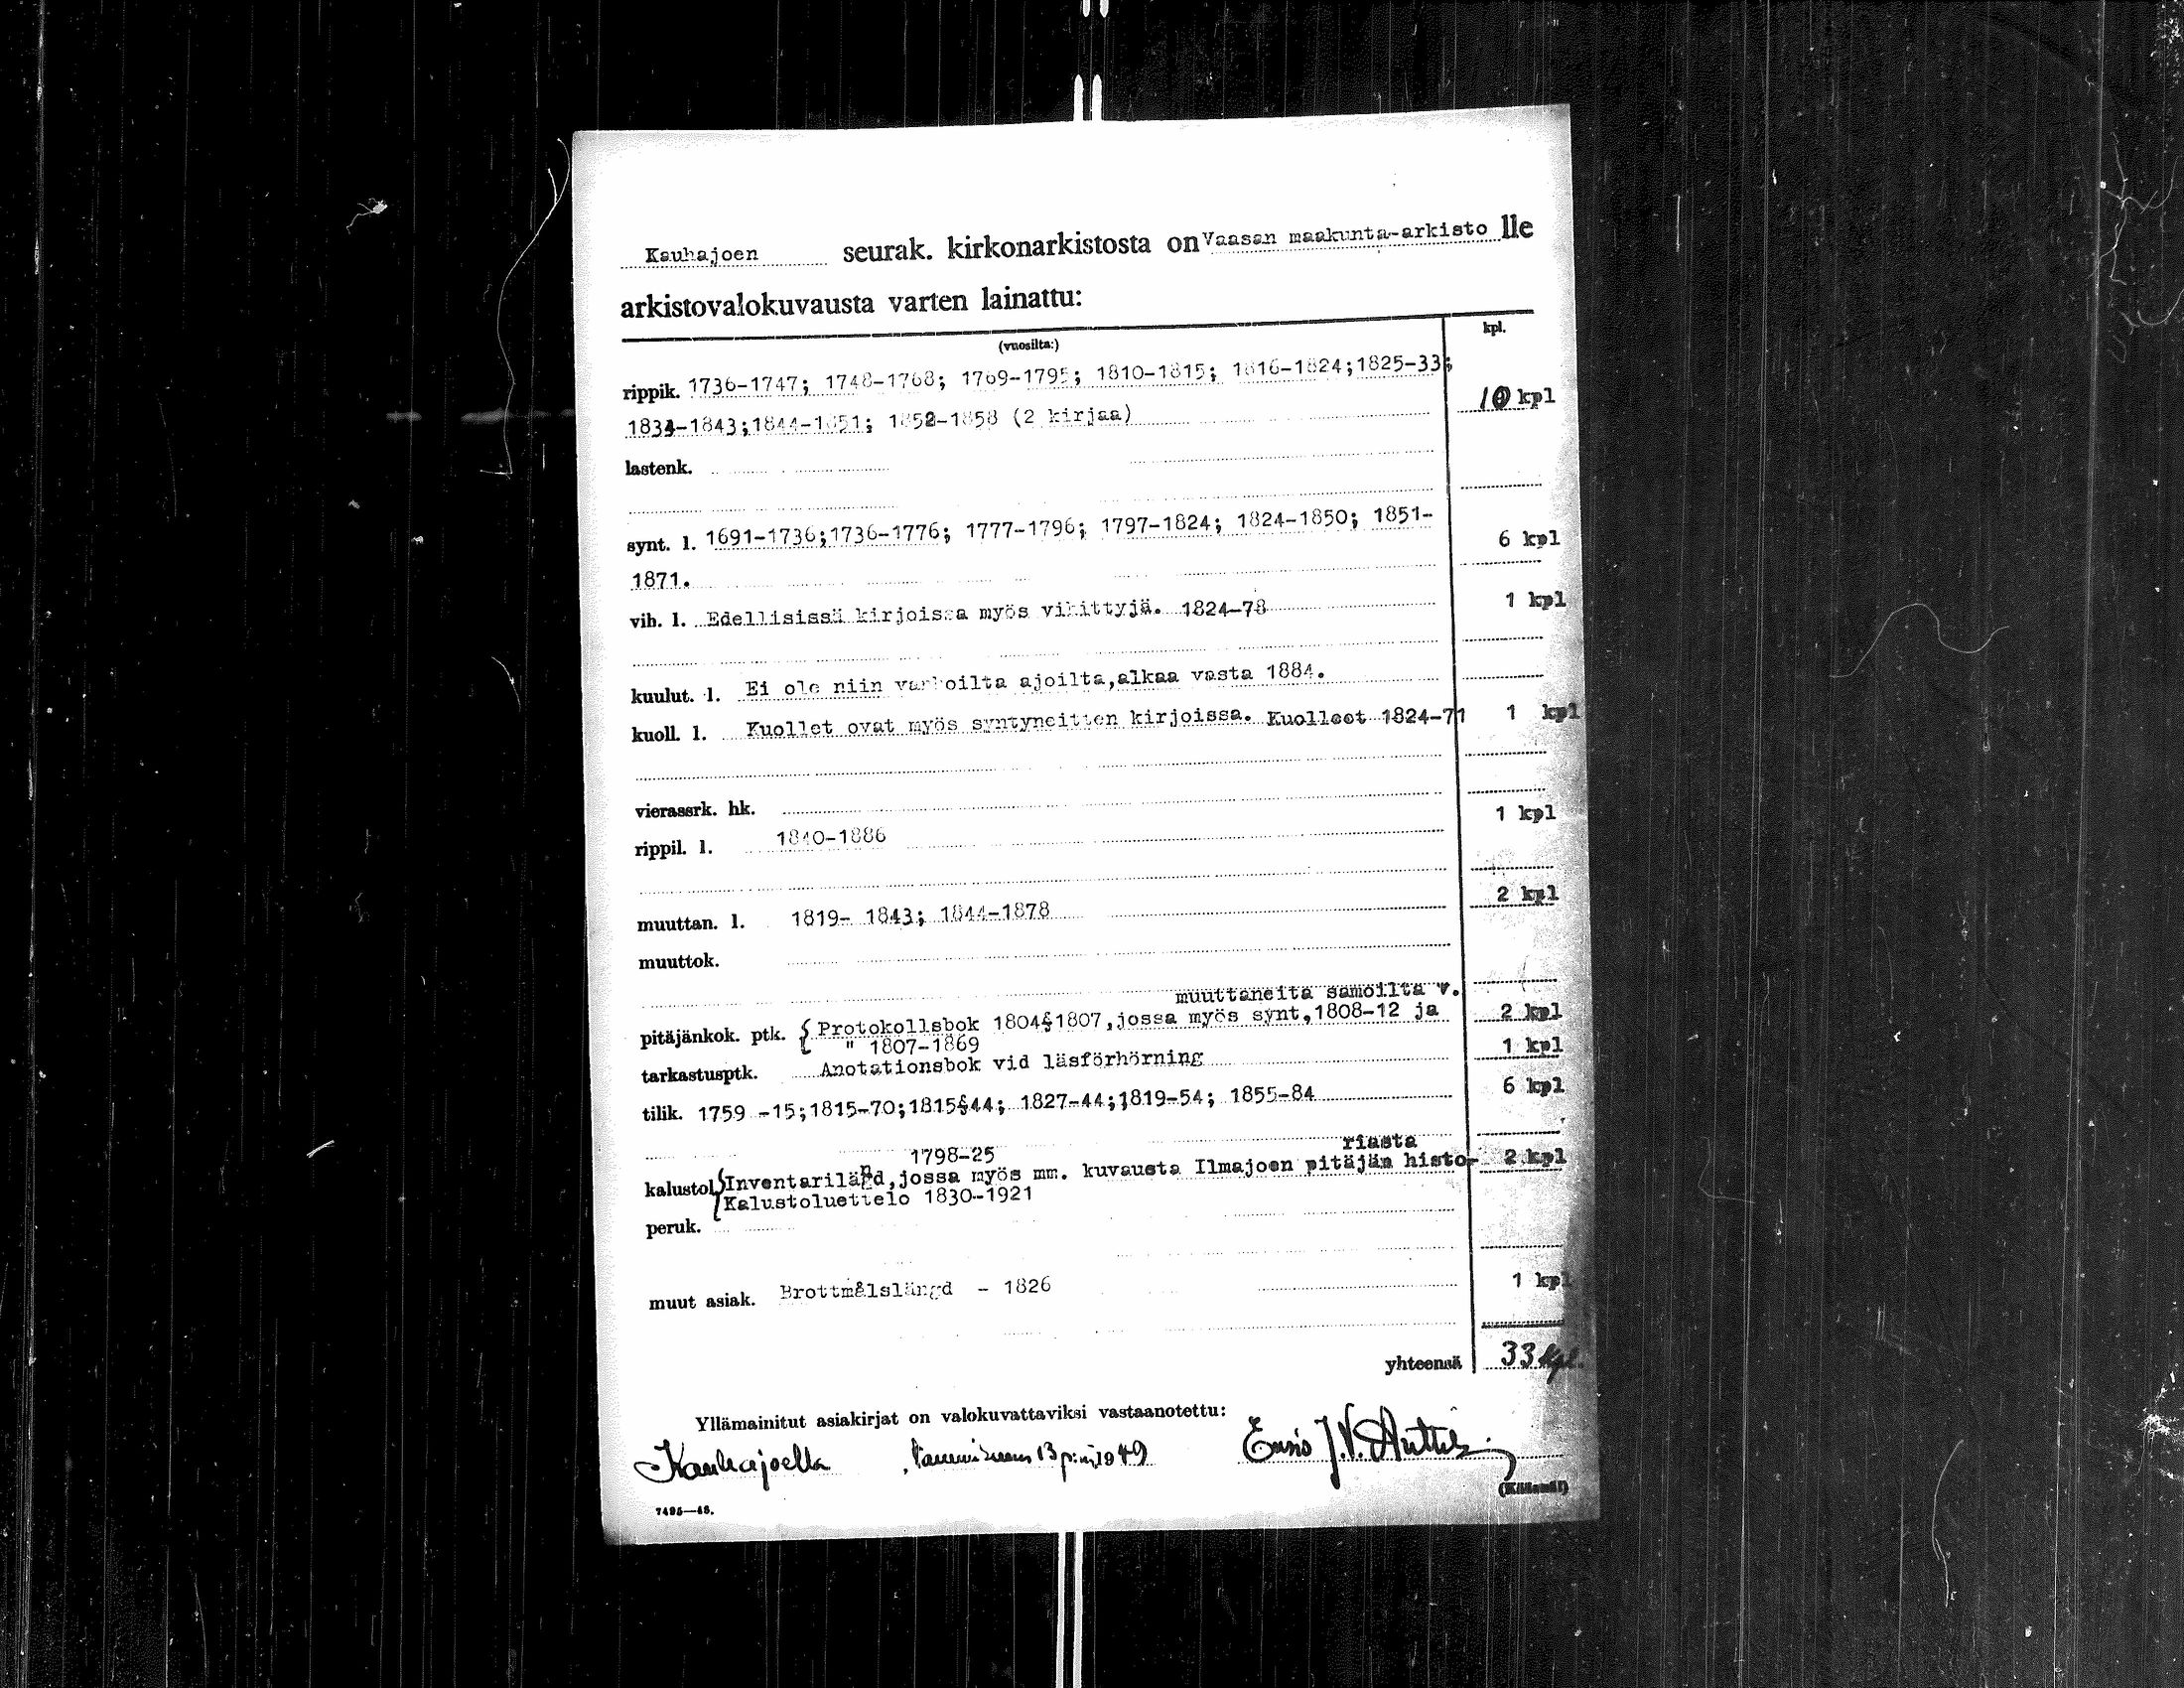 Kauhajoen seurak. kirkonarkistosta on Vaasan maakunta-arkisto lle
arkistovalokuvausta varten lainattu:
(vuosilta:) kpl.
rippik. 1736-1747; 1748-1768; 1769-1795; 1810-1815; 1816-1824;1825-33;
1834-1843;1844-1851; 1852-1858 (2 kirjaa) 10 kpl
lastenk.
synt. l. 1691-1736;1736-1776; 1777-1796; 1797-1824; 1824-1850; 1851-
1871. 6 kpl
vih. l. Edellisissä kirjoissa myös vihittyjä. 1824-78 1 kpl
kuulut. l. Ei ole niin varhoilta ajoilta,alkaa vasta 1884.
kuoll. l. Kuollet ovat myös syntyneitten kirjoissa. Kuolleet 1824-71 1 kpl
vierassrk. hk.
rippil. l. 1840-1886 1 kpl
muuttan. l. 1819- 1843; 1844-1878 2 kpl
muuttok.
muuttaneita samoilta v.
pitäjänkok. ptk. { Protokollsbok 1804§1807,jossa myös synt,1808-12 ja 2 kpl
" 1807-1869
tarkastusptk. Anotationsbok vid läsförhörning 1 kpl
tilik. 1759 -15;1815-70;1815§44; 1827-44;1819-54; 1855-84 6 kpl
1798-25 riasta
kalustol { Inventariländ,jossa myös mm. kuvausta Ilmajoen pitäjän histo- 2 kpl
Kalustoluettelo 1830-1921
peruk.
muut asiak. Brottmålslängd - 1826 1 kpl
yhteensä 33 kpl.
Yllämainitut asiakirjat on valokuvattaviksi vastaanotettu:
Kauhajoella , tammikuun 13 p:nä 1949 J.V.
7495—48.